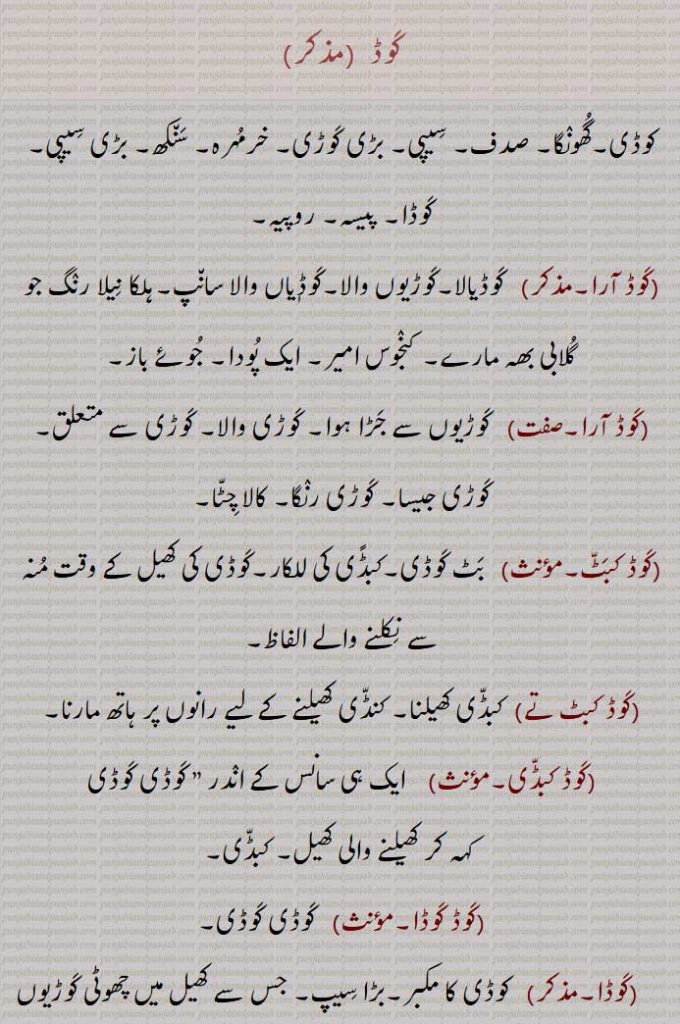 کَوڈ (مذکر)
کوڈی۔گُھونْگا۔ صدف۔ سِیپی۔ بڑی کَوڑی۔ خرمُہرہ۔ سَنّکھ۔ بڑی سِیپی۔
کَوڈا۔ پیسہ۔ روپیہ۔
(کَوڈ آرا۔مذکر) کَوڈیالا۔کَوڑیوں والا۔کَوڈیاں والا سانْپ۔ ہلکا نِیلا رنْگ جو
گُلابی بھہ مارے۔ کنْجُوس امیر۔ ایک پُودا۔ جُوئے باز۔
(کَوڈ آرا۔صفت) کَوڑیوں سے جَڑا ہوا۔ کَوڑی والا۔ کَوڑی سے متعلق۔
کَوڑی جیسا۔ کَوڑی رنْگا۔ کالا چِٹّا۔
(کَوڈ کبَٹّ۔مؤنث) بَٹ کَوڈی۔کبڈّی کی للکار۔کَوڈی کی کھیل کے وقت مُنہ
سے نِکلنے والے الفاظ۔
(کَوڈ کبٹ تے) کبڈّی کھیلنا۔ کنڈّی کھیلنے کے لیے رانوں پر ہاتھ مارنا۔
(کَوڈ کبڈّی۔مؤنث) ایک ہی سانس کے انْدر ” کَوڈی کَوڈی
کہہ کر کھیلنے والی کھیل۔ کبڈّی۔
(کَوڈ کَوڈا۔مؤنث) کَوڈی کَوڈی۔
(کَوڈا۔مذکر) کوڈی کا مکبر۔بڑا سِیپ۔ جس سے کھیل میں چھوٹی کَوڑیوں